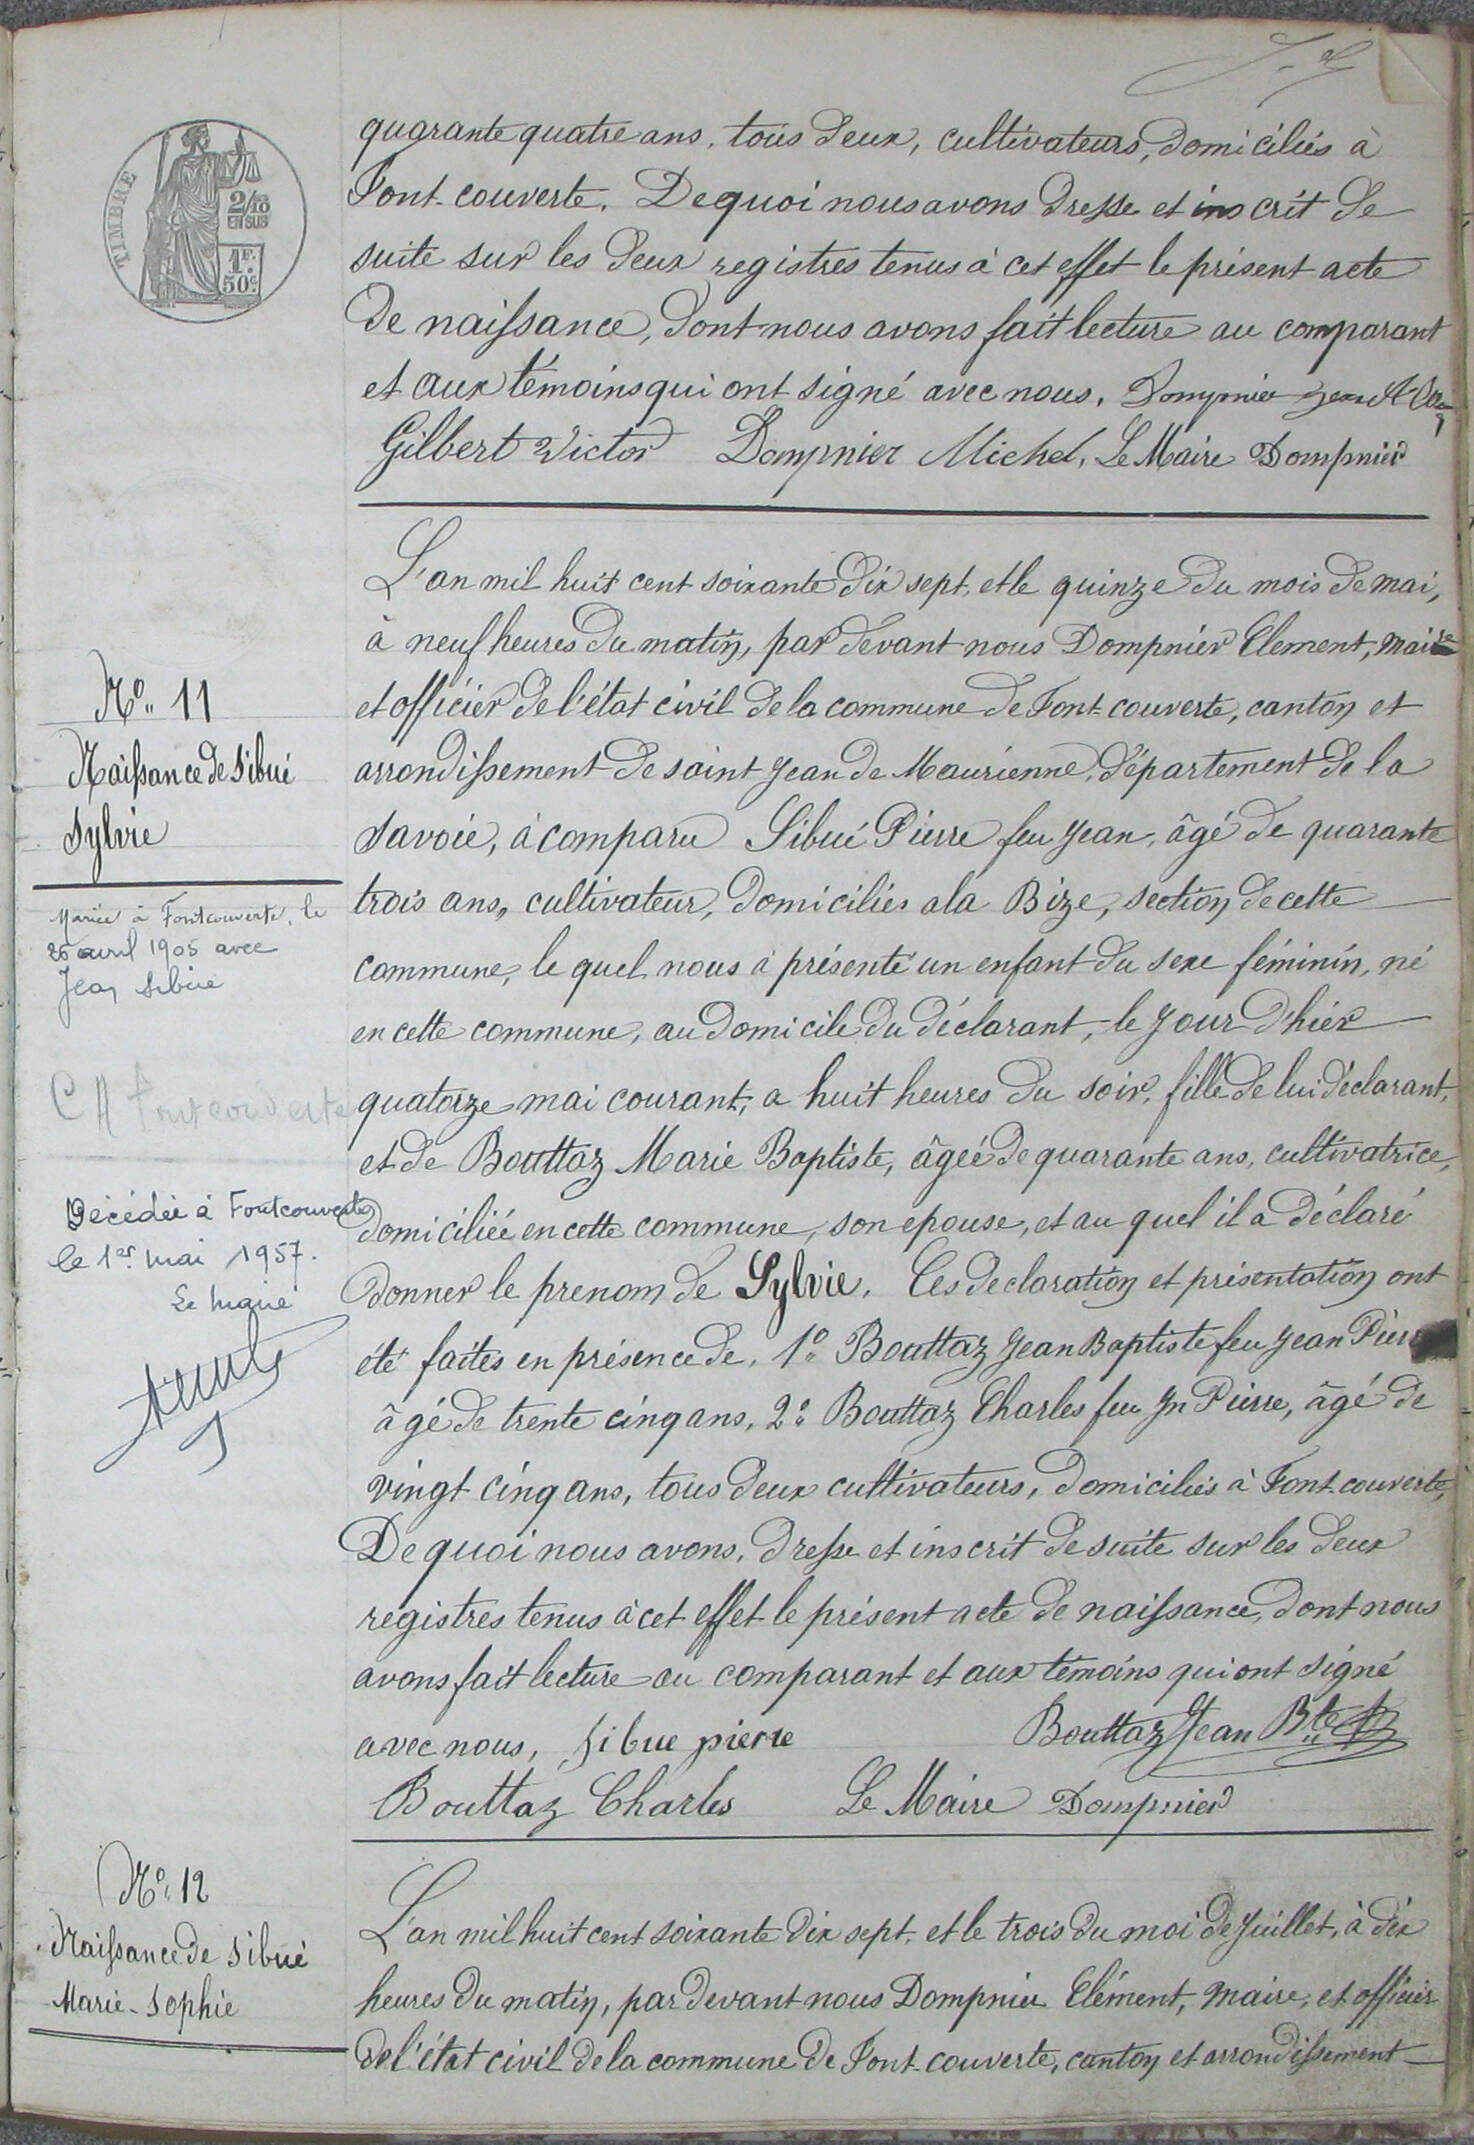 TIMBRE
2/10
EN SUS
1F.
50c.
quarante quatre ans, tous deux, cultivateurs, domiciliés à
Font-couverte. De quoi nous avons dresse et inscrit de
suite sur les deux registres tenus à cet effet le présent acte
de naissance, dont nous avons fait lecture au comparant
et aux témoins qui ont signé avec nous. Dompnier Jean
Gilbert Victor Dompnier Michel, Le Maire Dompnier
N° 11
Naissance de Sibué
Sylvie
Mariée à Fontcouverte, le
26 avril 1905 avec
Jean Sibué
CA Fontcouverte
Décédée à Fontcouverte
le 1er mai 1957.
Le maire
L'an mil huit cent soixante dix sept, et le quinze du mois de mai,
à neuf heures du matin, par devant nous Dompnier Clement, maire
et officier de l'état civil de la commune de Font-couverte, canton et
arrondissement de saint Jean de Maurienne, département de la
Savoie, à comparu Sibué Pierre feu Jean, âgé de quarante
trois ans, cultivateur, domiciliés a la Bize, section de cette
commune, le quel nous à présenté un enfant du sexe féminin, né
en cette commune, au domicile du déclarant, le jour d'hier
quatorze mai courant, a huit heures du soir, fille de lui déclarant,
et de Bouttaz Marie Baptiste, âgeé de quarante ans, cultivatrice,
domiciliée en cette commune, son epouse, et au quel il a déclaré
donner le prenom de Sylvie. Ces declaration et présentation ont
été faites en présence de, 1° Bouttaz Jean Baptiste feu Jean Pierre
âgé de trente cinq ans, 2° Bouttaz Charles feu Jn Pierre, âgé de
vingt cinq ans, tous deux cultivateurs, domiciliés à Font-couverte,
De quoi nous avons, dresse et inscrit de suite sur les deux
registres tenus à cet effet le présent acte de naissance, dont nous
avons fait lecture au comparant et aux témoins qui ont signé
avec nous, Sibue pierre Bouttaz Jean Bte
Bouttaz Charles Le Maire Dompnier
N° 12
Naissance de Sibué
Marie-Sophie
L'an mil huit cent soixante dix sept, et le trois du moi de Juillet, à dix
heures du matin, par devant nous Dompnier Clément, maire, et officier
de l'état civil de la commune de Font-couverte, canton et arrondissement